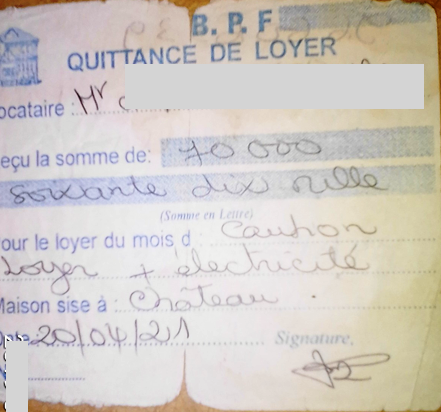 B. P. F
QUITTANCE DE LOYER
ocataire : Mr
eçu la somme de: 70 000
soixante dix mille
(Somme en Lettre)
our le loyer du mois d Caution
Loyer + électricité
Maison sise à : Château .
20/04/21 Signature,